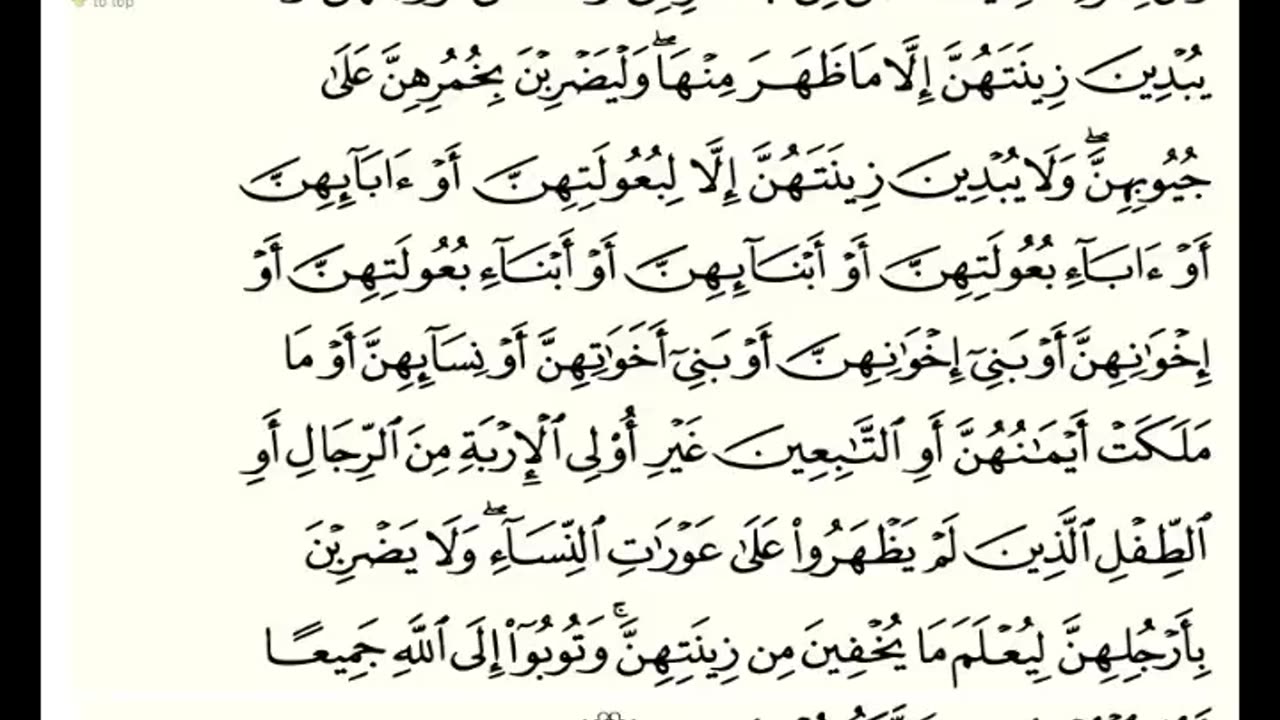 to top
يُبْدِينَ زِينَتَهُنَّ إِلَّا مَا ظَهَرَ مِنْهَا ۖ وَلْيَضْرِبْنَ بِخُمُرِهِنَّ عَلَىٰ
جُيُوبِهِنَّ ۖ وَلَا يُبْدِينَ زِينَتَهُنَّ إِلَّا لِبُعُولَتِهِنَّ أَوْ ءَابَآئِهِنَّ
أَوْ ءَابَآءِ بُعُولَتِهِنَّ أَوْ أَبْنَآئِهِنَّ أَوْ أَبْنَآءِ بُعُولَتِهِنَّ أَوْ
إِخْوَٰنِهِنَّ أَوْ بَنِىٓ إِخْوَٰنِهِنَّ أَوْ بَنِىٓ أَخَوَٰتِهِنَّ أَوْ نِسَآئِهِنَّ أَوْ مَا
مَلَكَتْ أَيْمَـٰنُهُنَّ أَوِ ٱلتَّـٰبِعِينَ غَيْرِ أُو۟لِى ٱلْإِرْبَةِ مِنَ ٱلرِّجَالِ أَوِ
ٱلطِّفْلِ ٱلَّذِينَ لَمْ يَظْهَرُوا۟ عَلَىٰ عَوْرَٰتِ ٱلنِّسَآءِ ۖ وَلَا يَضْرِبْنَ
بِأَرْجُلِهِنَّ لِيُعْلَمَ مَا يُخْفِينَ مِن زِينَتِهِنَّ ۚ وَتُوبُوٓا۟ إِلَى ٱللَّهِ جَمِيعًا